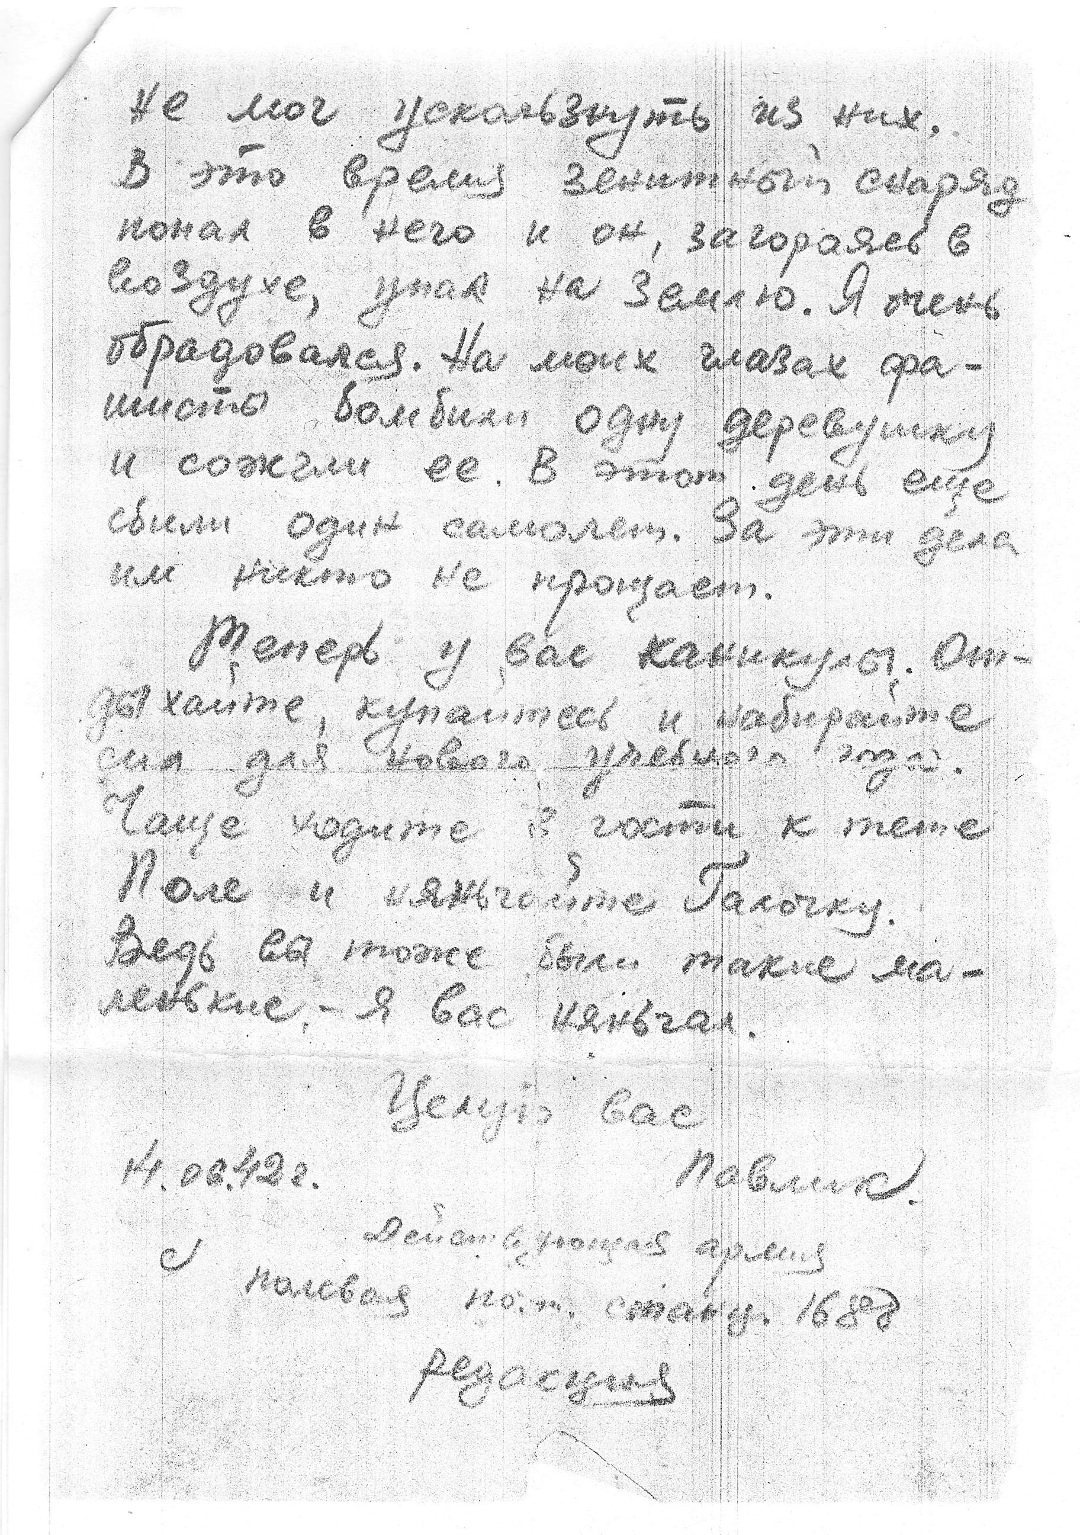 не мог ускользнуть из них.
В это время зенитный снаряд
попал в него и он, загораясь в
воздухе, упал на землю. Я очень
обрадовался. На моих глазах фа-
шисты бомбили одну деревушку
и сожгли ее. В этот день еще
сбили один самолет. За эти дела
им никто не прощает.
Теперь у вас каникулы. От-
дыхайте, купайтесь и набирайте
сил для нового учебного года.
Чаще ходите в гости к тете
Поле и няньчайте Галочку.
Ведь вы тоже были такие ма-
ленькие, - я вас няньчал.
Целую вас
Павлик.
Действующая армия
полевая почт. станц. 1688
редакция